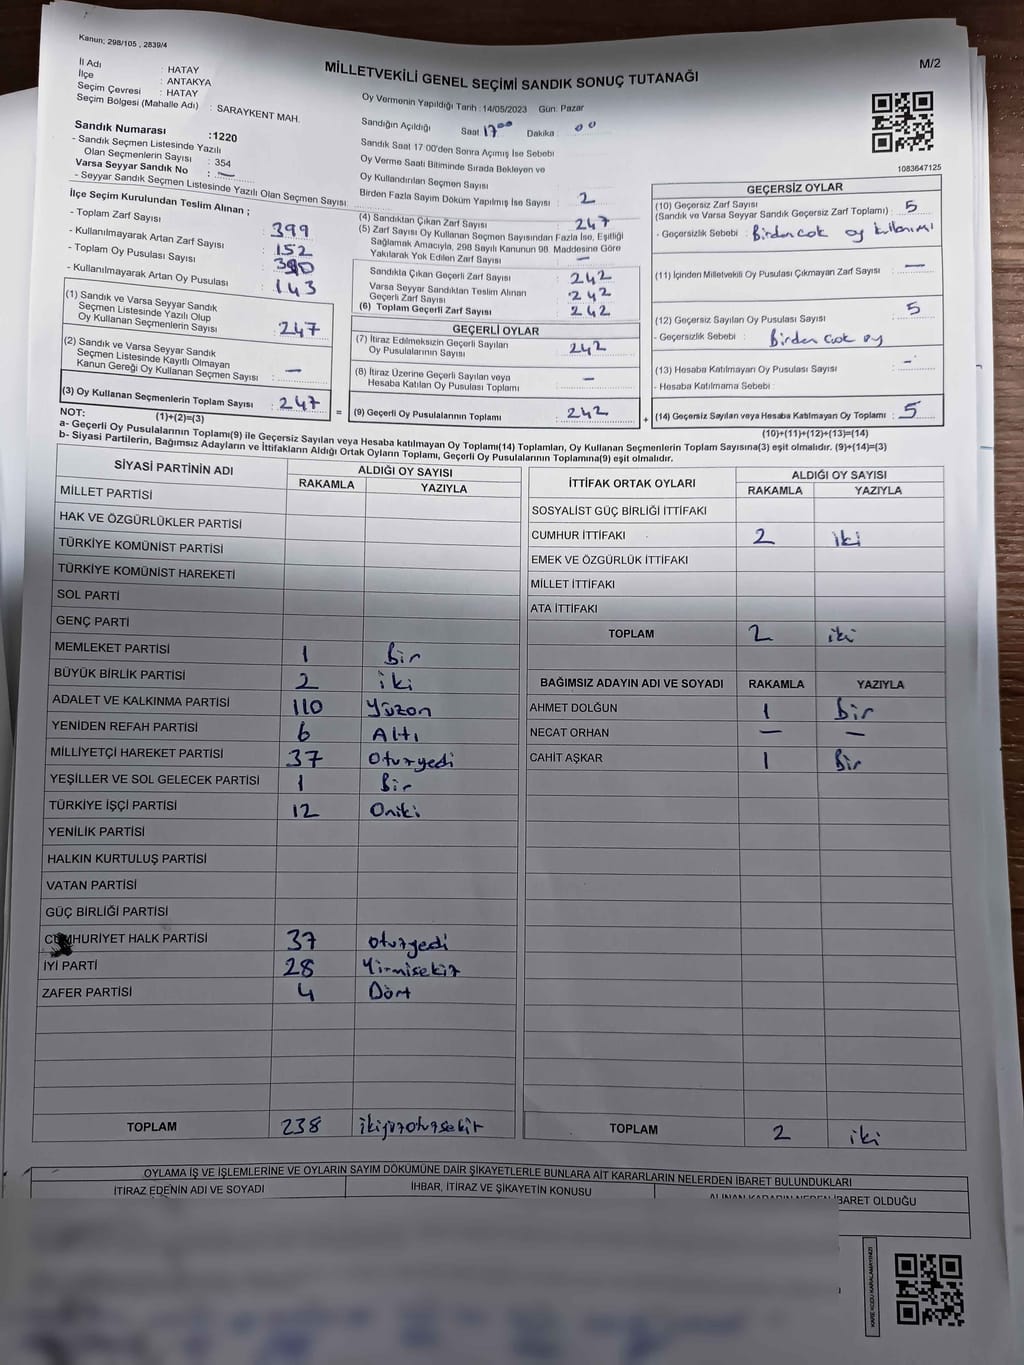 Kanun; 298/105 , 2839/4
M/2
MİLLETVEKİLİ GENEL SEÇİMİ SANDIK SONUÇ TUTANAĞI
İl Adı : HATAY
İlçe : ANTAKYA
Seçim Çevresi : HATAY
Seçim Bölgesi (Mahalle Adı) : SARAYKENT MAH.
Sandık Numarası :1220
- Sandık Seçmen Listesinde Yazılı
Olan Seçmenlerin Sayısı : 354
Varsa Seyyar Sandık No : —
- Seyyar Sandık Seçmen Listesinde Yazılı Olan Seçmen Sayısı
Oy Vermenin Yapıldığı Tarih : 14/05/2023 Gün: Pazar
Sandığın Açıldığı Saat 17⁰⁰ Dakika : 00
Sandık Saat 17:00'den Sonra Açımış İse Sebebi
Oy Verme Saati Bitiminde Sırada Bekleyen ve
Oy Kullandırılan Seçmen Sayısı
Birden Fazla Sayım Döküm Yapılmış İse Sayısı : 2
1083647125
İlçe Seçim Kurulundan Teslim Alınan ;
- Toplam Zarf Sayısı : 399
- Kullanılmayarak Artan Zarf Sayısı : 152
- Toplam Oy Pusulası Sayısı : 390
- Kullanılmayarak Artan Oy Pusulası : 143
(1) Sandık ve Varsa Seyyar Sandık
Seçmen Listesinde Yazılı Olup
Oy Kullanan Seçmenlerin Sayısı : 247
(2) Sandık ve Varsa Seyyar Sandık
Seçmen Listesinde Kayıtlı Olmayan
Kanun Gereği Oy Kullanan Seçmen Sayısı : —
(3) Oy Kullanan Seçmenlerin Toplam Sayısı : 247
(1)+(2)=(3)
(4) Sandıktan Çıkan Zarf Sayısı : 247
(5) Zarf Sayısı Oy Kullanan Seçmen Sayısından Fazla İse, Eşitliği
Sağlamak Amacıyla, 298 Sayılı Kanunun 98. Maddesine Göre
Yakılarak Yok Edilen Zarf Sayısı : —
Sandıkta Çıkan Geçerli Zarf Sayısı : 242
Varsa Seyyar Sandıktan Teslim Alınan
Geçerli Zarf Sayısı : 242
(6) Toplam Geçerli Zarf Sayısı : 242
GEÇERLİ OYLAR
(7) İtiraz Edilmeksizin Geçerli Sayılan
Oy Pusulalarının Sayısı : 242
(8) İtiraz Üzerine Geçerli Sayılan veya
Hesaba Katılan Oy Pusulası Toplamı : —
= (9) Geçerli Oy Pusulalarının Toplamı : 242
GEÇERSİZ OYLAR
(10) Geçersiz Zarf Sayısı
(Sandık ve Varsa Seyyar Sandık Geçersiz Zarf Toplamı) : 5
- Geçersizlik Sebebi : Birden cok oy kullanımı
(11) İçinden Milletvekili Oy Pusulası Çıkmayan Zarf Sayısı : —
(12) Geçersiz Sayılan Oy Pusulası Sayısı : 5
- Geçersizlik Sebebi : Birden cok oy
(13) Hesaba Katılmayan Oy Pusulası Sayısı : —
- Hesaba Katılmama Sebebi :
+ (14) Geçersiz Sayılan veya Hesaba Katılmayan Oy Toplamı : 5
(10)+(11)+(12)+(13)=(14)
NOT:
a- Geçerli Oy Pusulalarının Toplamı(9) ile Geçersiz Sayılan veya Hesaba katılmayan Oy Toplamı(14) Toplamları, Oy Kullanan Seçmenlerin Toplam Sayısına(3) eşit olmalıdır. (9)+(14)=(3)
b- Siyasi Partilerin, Bağımsız Adayların ve İttifakların Aldığı Ortak Oyların Toplamı, Geçerli Oy Pusulalarının Toplamına(9) eşit olmalıdır.
SİYASİ PARTİNİN ADI ALDIĞI OY SAYISI
RAKAMLA YAZIYLA
MİLLET PARTİSİ
HAK VE ÖZGÜRLÜKLER PARTİSİ
TÜRKİYE KOMÜNİST PARTİSİ
TÜRKİYE KOMÜNİST HAREKETİ
SOL PARTİ
GENÇ PARTİ
MEMLEKET PARTİSİ 1 Bir
BÜYÜK BİRLİK PARTİSİ 2 iki
ADALET VE KALKINMA PARTİSİ 110 Yüzon
YENİDEN REFAH PARTİSİ 6 Altı
MİLLİYETÇİ HAREKET PARTİSİ 37 Otuzyedi
YEŞİLLER VE SOL GELECEK PARTİSİ 1 Bir
TÜRKİYE İŞÇİ PARTİSİ 12 Oniki
YENİLİK PARTİSİ
HALKIN KURTULUŞ PARTİSİ
VATAN PARTİSİ
GÜÇ BİRLİĞİ PARTİSİ
CUMHURİYET HALK PARTİSİ 37 Otuzyedi
İYİ PARTİ 28 Yirmisekiz
ZAFER PARTİSİ 4 Dört
TOPLAM 238 ikiyüzotuzsekiz
İTTİFAK ORTAK OYLARI ALDIĞI OY SAYISI
RAKAMLA YAZIYLA
SOSYALİST GÜÇ BİRLİĞİ İTTİFAKI
CUMHUR İTTİFAKI 2 iki
EMEK VE ÖZGÜRLÜK İTTİFAKI
MİLLET İTTİFAKI
ATA İTTİFAKI
TOPLAM 2 iki
BAĞIMSIZ ADAYIN ADI VE SOYADI RAKAMLA YAZIYLA
AHMET DOLĞUN 1 Bir
NECAT ORHAN — —
CAHİT AŞKAR 1 Bir
TOPLAM 2 iki
OYLAMA İŞ VE İŞLEMLERİNE VE OYLARIN SAYIM DÖKÜMÜNE DAİR ŞİKAYETLERLE BUNLARA AİT KARARLARIN NELERDEN İBARET BULUNDUKLARI
İTİRAZ EDENİN ADI VE SOYADI
İHBAR, İTİRAZ VE ŞİKAYETİN KONUSU
ALINAN KARARIN NEDEN İBARET OLDUĞU
KARE KODU KARALAMAYINIZ!